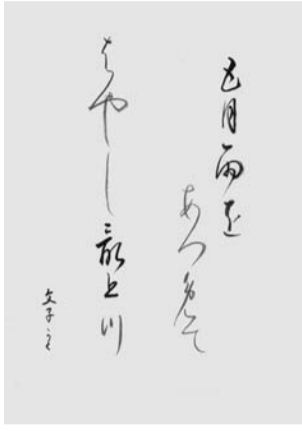 五月雨を
あつめて
はやし最上川
文子